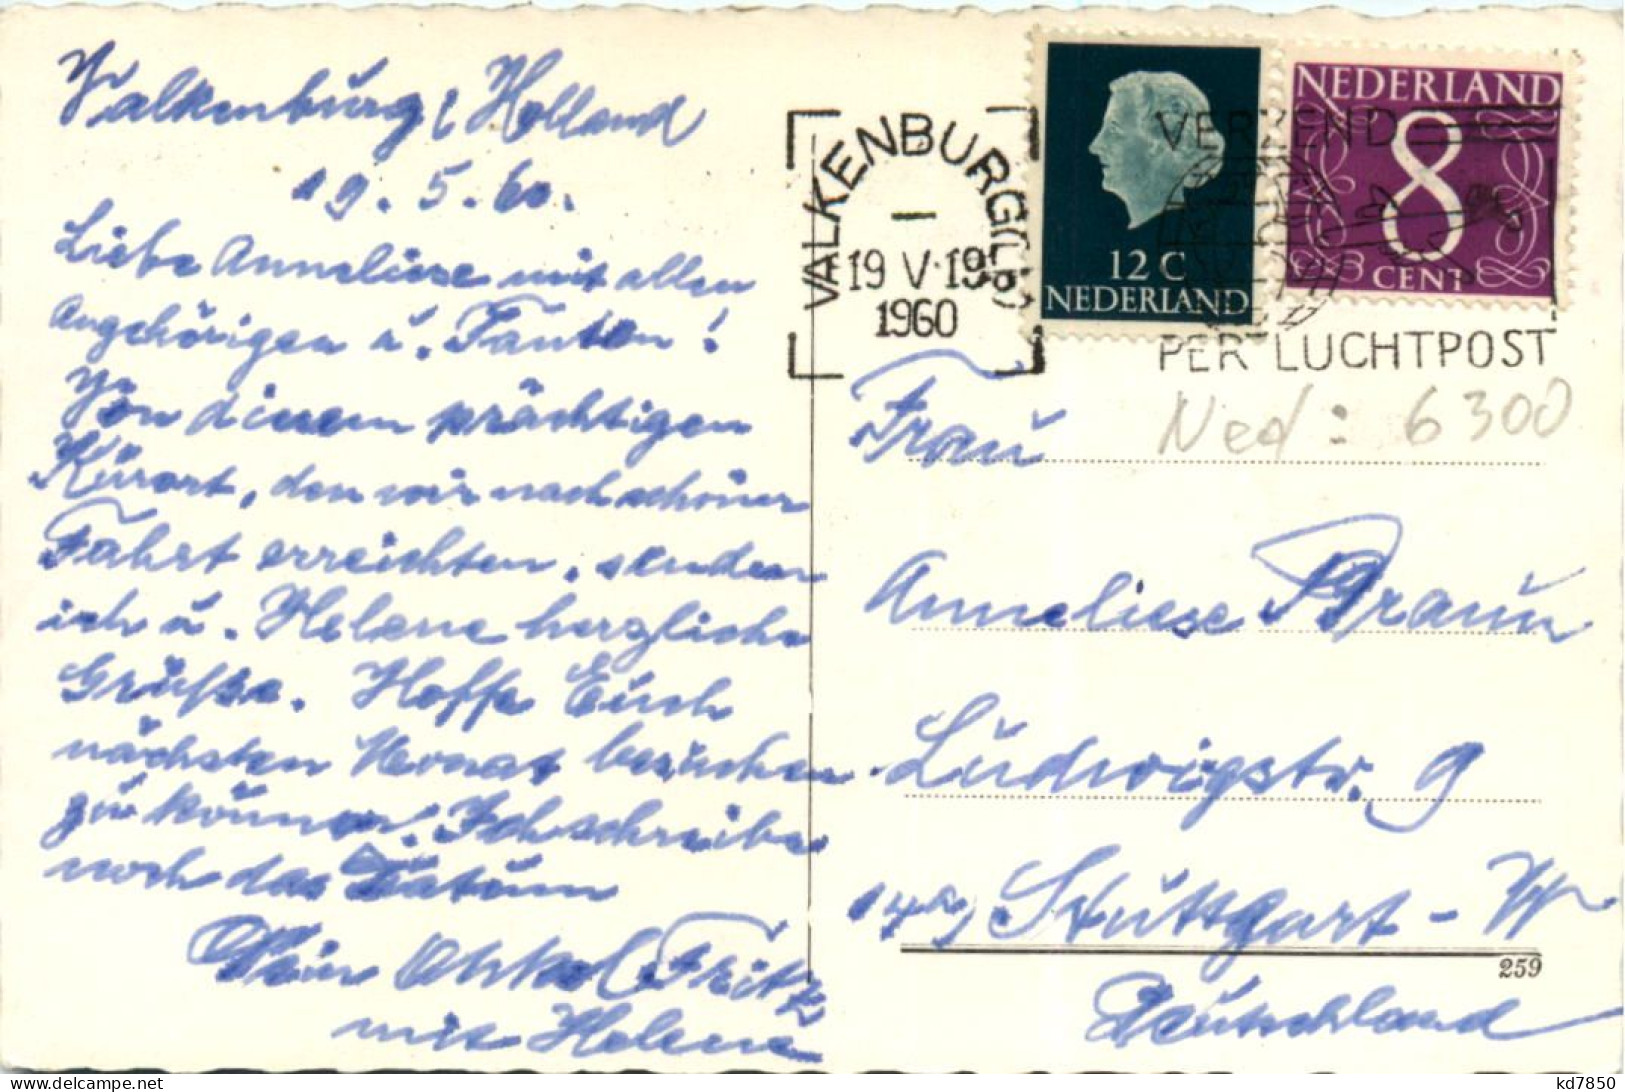 Valkenburg / Holland
19. 5. 60.
Liebe Anneliese mit allen
Angehörigen u. Tanten!
Von diesem prächtigen
Kurort, den wir nach schöner
Fahrt erreichten, senden
ich u. Helene herzliche
Grüße. Hoffe Euch
nächsten Monat besuchen
zu können. Ich schreibe
noch das Datum
Dein Onkel Fritz
mit Helene
VALKENBURG
19 V 19
1960
12 C
NEDERLAND
NEDERLAND
8
CENT
VERZEND
PER LUCHTPOST
Ned: 6300
Frau
Anneliese Braun
Ludwigstr. 9
Stuttgart - W
259
Deutschland
kd7850